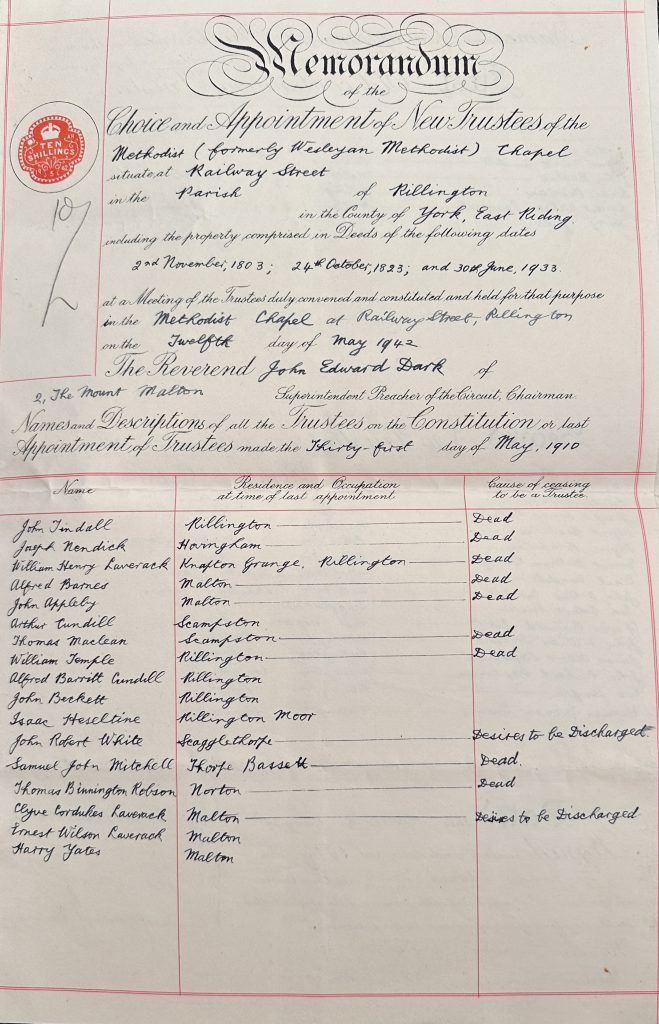 Memorandum
of the
Choice and Appointment of New Trustees of the
Methodist (formerly Wesleyan Methodist) Chapel
situate at Railway Street
in the Parish of Rillington
in the County of York, East Riding
including the property comprised in Deeds of the following dates
2nd November, 1803; 24th October, 1823; and 30th June, 1933.
at a Meeting of the Trustees duly convened and constituted and held for that purpose
in the Methodist Chapel at Railway Street, Rillington
on the Twelfth day of May 1942
The Reverend John Edward Dark of
2, The Mount Malton Superintendent Preacher of the Circuit, Chairman.
Names and Descriptions of all the Trustees on the Constitution or last
Appointment of Trustees made the Thirty-first day of May, 1910
TEN
SHILLINGS
10/
Name Residence and Occupation at time of last appointment. Cause of ceasing to be a Trustee.
John Tindall Rillington Dead
Joseph Nendick Hovingham Dead
William Henry Laverack Knapton Grange, Rillington Dead
Alfred Barnes Malton Dead
John Appleby Malton Dead
Arthur Cundill Scampston
Thomas Maclean Scampston Dead
William Temple Rillington Dead
Alfred Barritt Cundill Rillington
John Beckett Rillington
Isaac Heseltine Rillington Moor
John Robert White Scagglethorpe Desires to be Discharged.
Samuel John Mitchell Thorpe Bassett Dead.
Thomas Binnington Robson Norton Dead
Clyve Cordukes Laverack Malton Desires to be Discharged
Ernest Wilson Laverack Malton
Harry Yates Malton